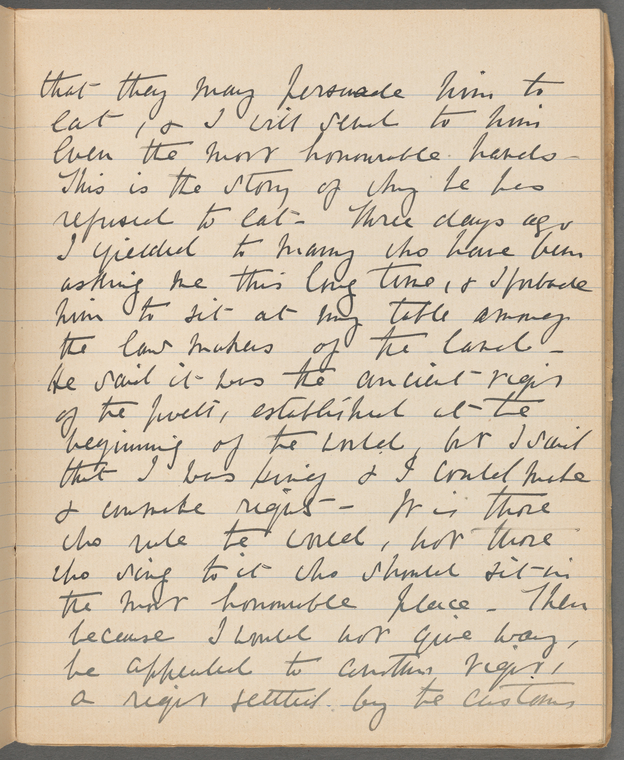 that they may persuade him to
eat, & I will send to him
even the most honourable hands -
This is the story of why he has
refused to eat - Three days ago
I yielded to many who have been
asking me this long time, & I forbade
him to sit at my table among
the law makers of the land -
He said it was the ancient right
of the poets, established at the
beginning of the world, but I said
that I was king & I could make
& unmake rights - It is those
who rule the world, not those
who sing to it who should sit in
the most honourable place - Then
because I would not give way,
he appealed to another right,
a right settled by the customs